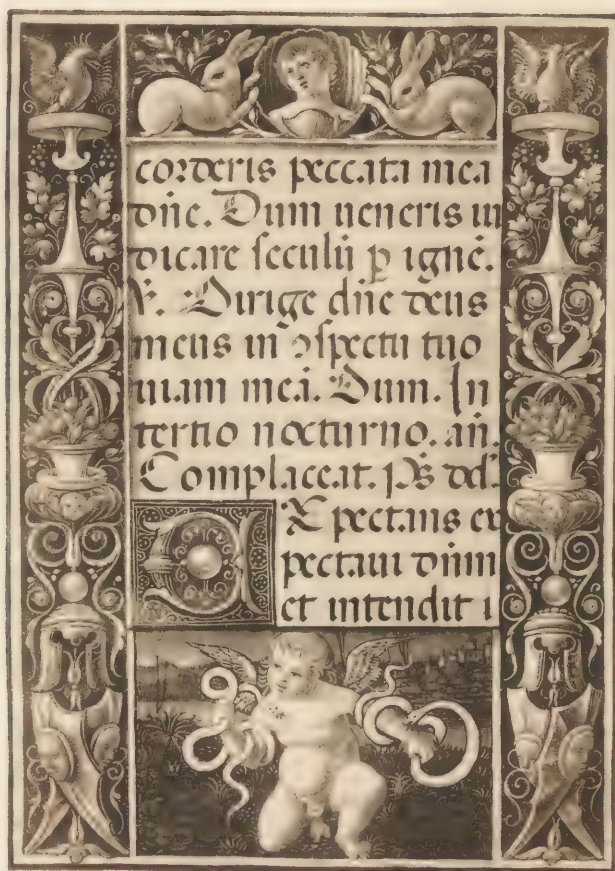 corderis peccata mea
dñe. Dum ueneris iu
dicare seculũ p̱ ignẽ.
℣. Dirige dñe deus
meus in ꝯspectu tuo
uiam meã. Dum. In
tertio nocturno. añ.
Complaceat. ps̃ dd̃.
EXpectans ex
pectaui dñm
et intendit i